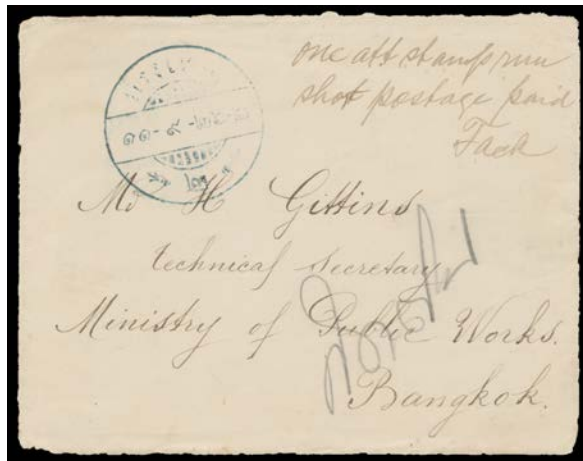 one att stamps run
shot postage paid
Mr H Gittins
technical secretary
Ministry of Public Works.
Bangkok.